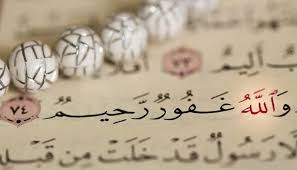 أَلِيمٌ ٧٣ أَفَلَا
وَٱللَّهُ غَفُورٌ رَّحِيمٌ ٧٤
لَّا رَسُولٌ قَدْ خَلَتْ مِن قَبْلِ